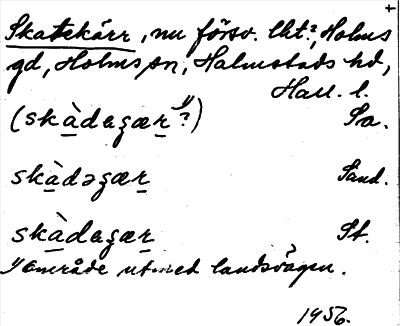 +
Skatekärr, nu försv. lht.?, Holms
gd, Holms sn, Halmstads hd,
Hall. l.
(skàdagær 1)?) Sa.
skàdəgær Sand.
skàdagær St.
1) Område utmed landsvägen.
1956.